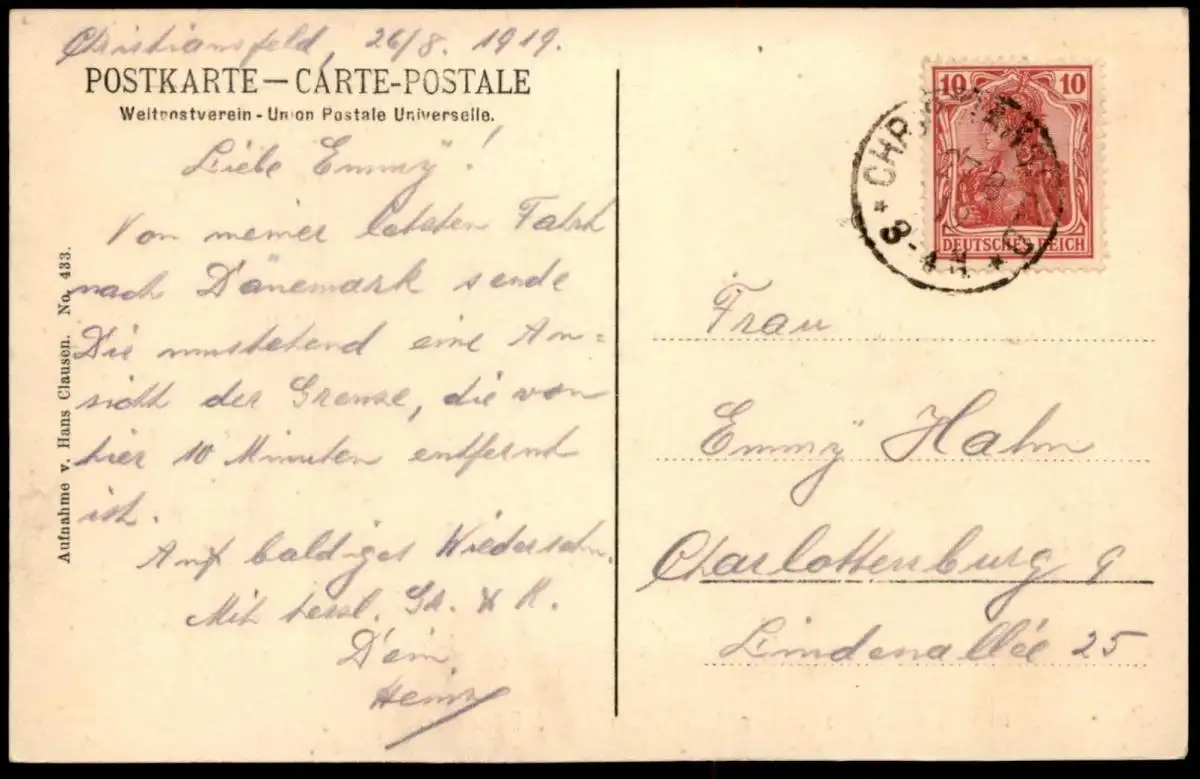 Christiansfeld, 26/8. 1919.
POSTKARTE — CARTE-POSTALE
Weltpostverein - Union Postale Universelle.
Liebe Emmÿ!
Von meiner letzten Fahrt
nach Dänemark sende
Dir umstehend eine An=
sicht der Grenze, die von
hier 10 Minuten entfernt
ist.
Auf baldiges Wiedersehn.
Mit herzl. Gr. & K.
Dein
Heinz
Aufnahme v. Hans Clausen. No. 433.
10 10
DEUTSCHES REICH
* CHRISTIANSF
27 8
19
3-4 N *
Frau
Emmÿ Hahn
Charlottenburg 9
Lindenallée 25